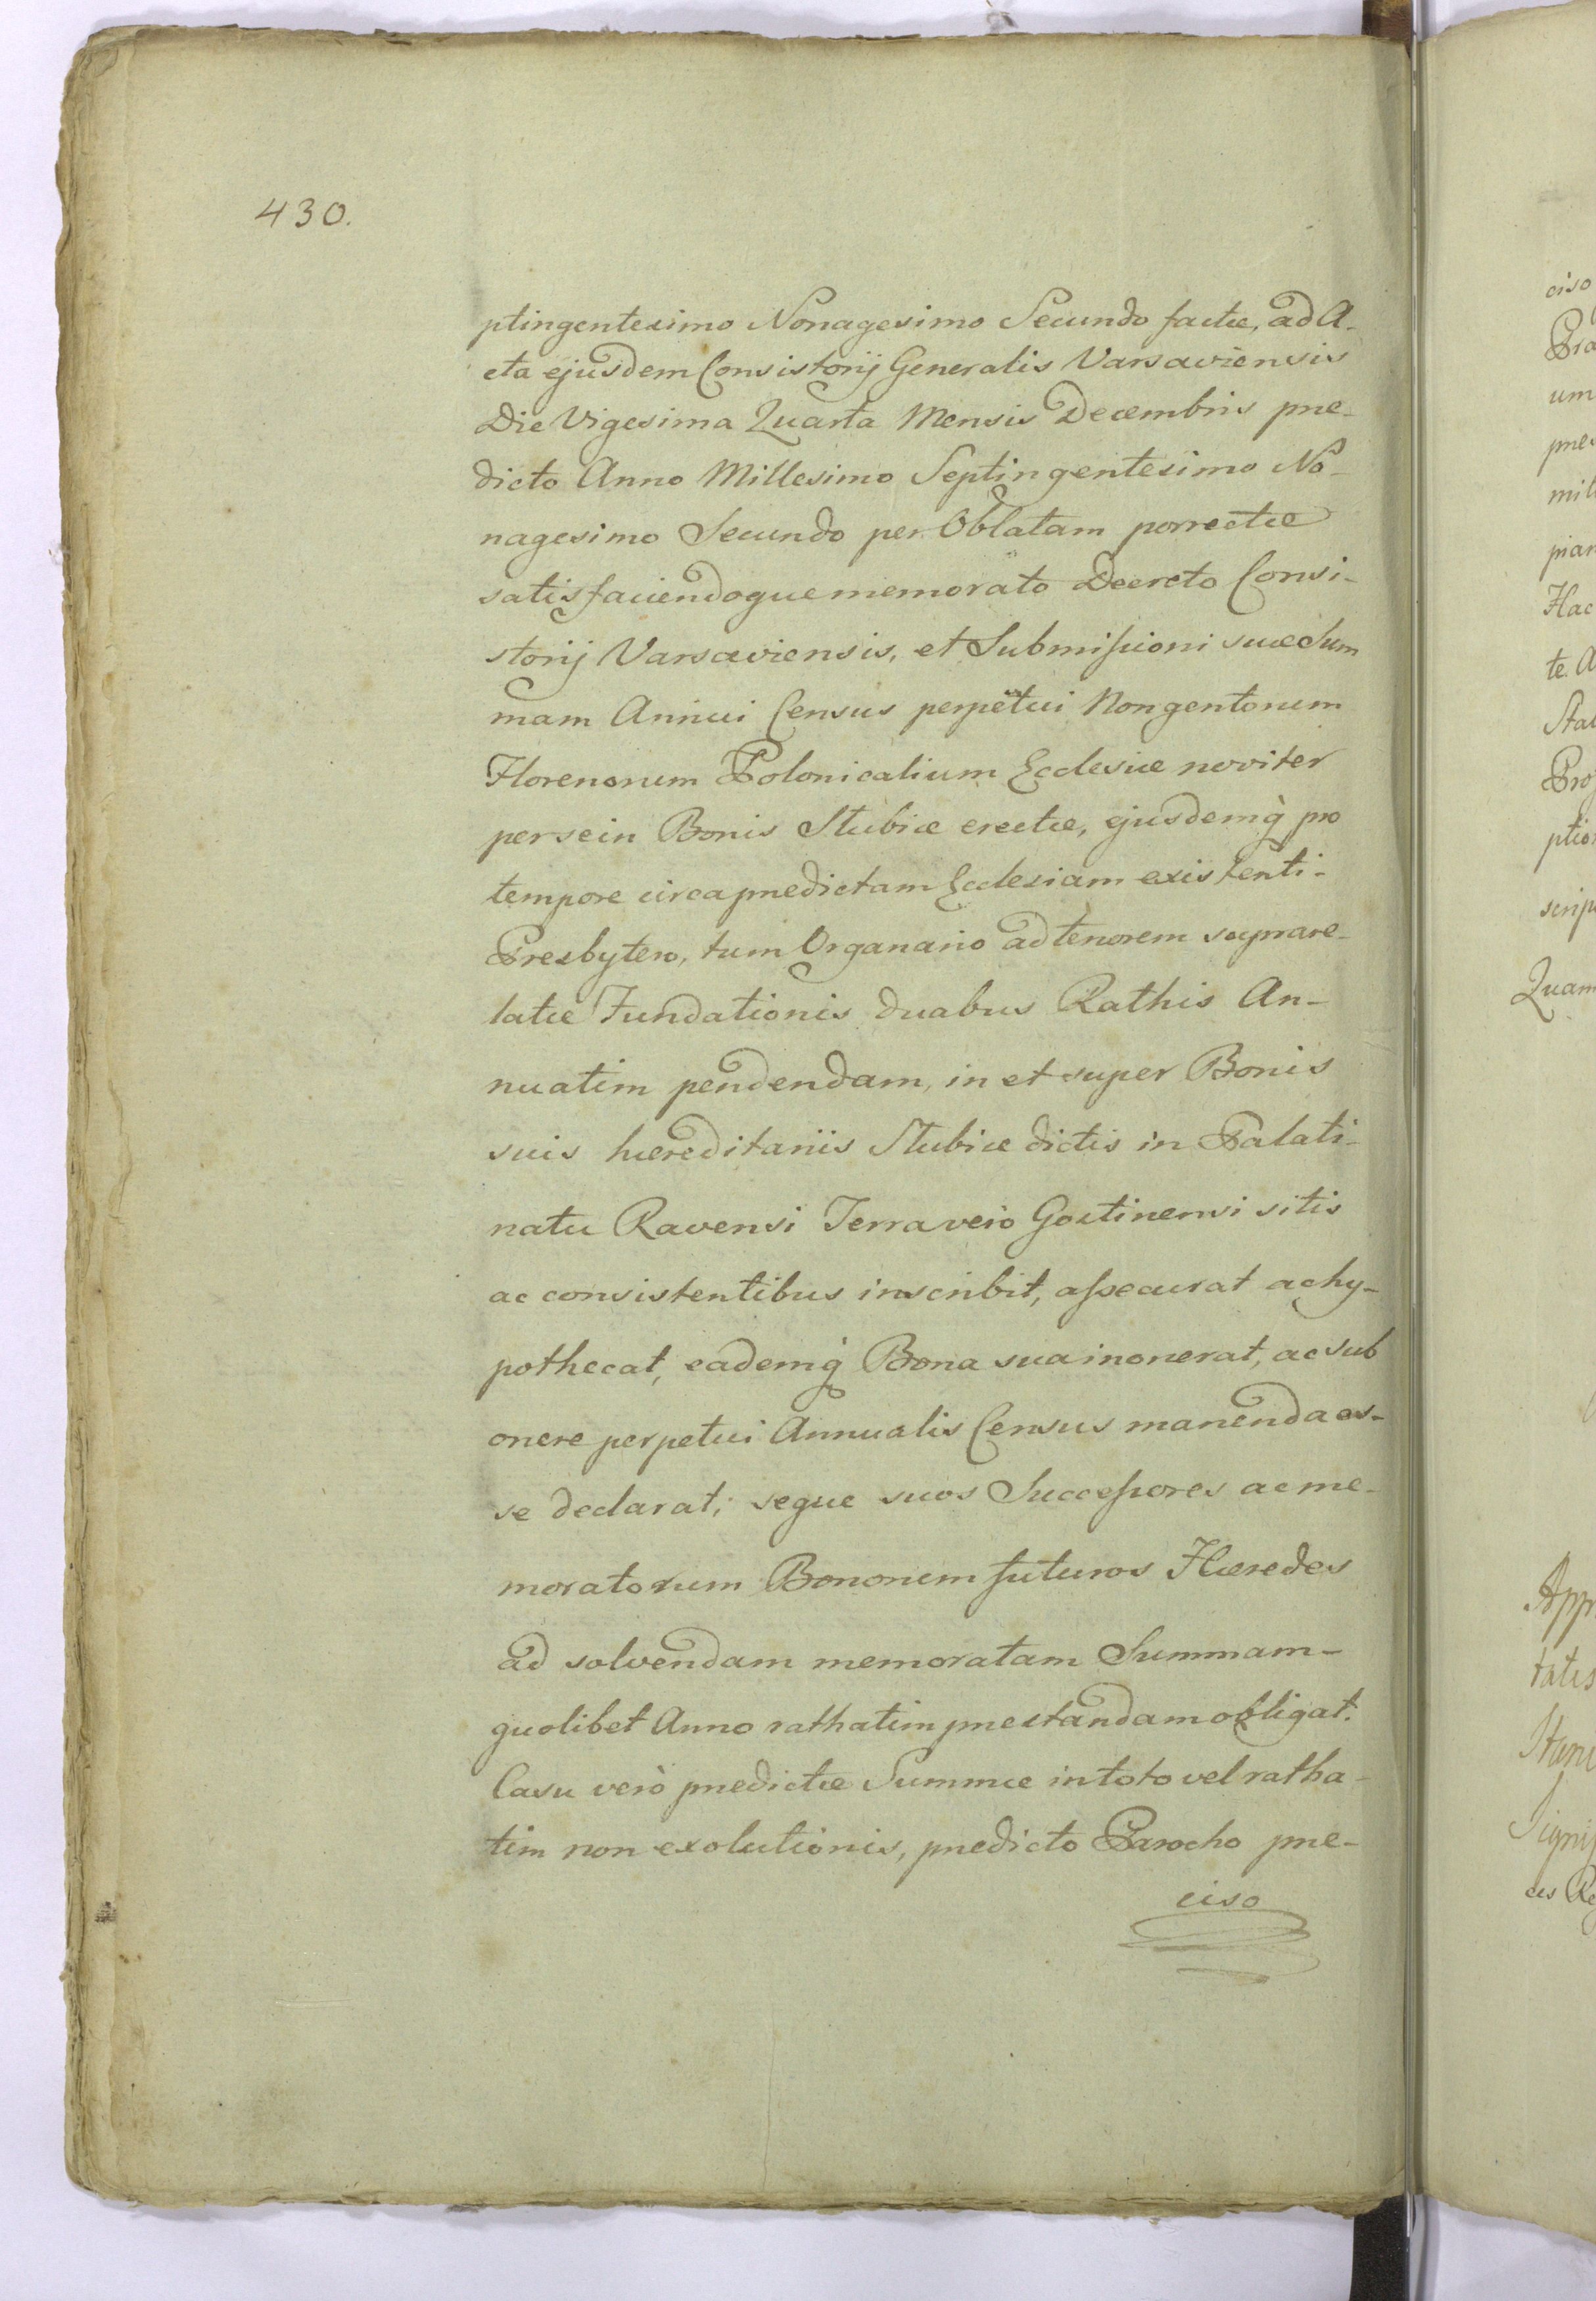 430.
ptingentesimo Nonagesimo Secundo factæ, ad A-
cta ejusdem Consistorij Generalis Varsaviensis
Die Vigesima Quarta Mensis Decembris præ-
dicto Anno Millesimo Septingentesimo No-
nagesimo Secundo per Oblatam porrectæ
satisfaciendoque memorato Decreto Consi-
storij Varsaviensis, et Submissioni suæ Sum
mam Annui Census perpetui Nongentorum
Florenorum Polonicalium Ecclesiæ noviter
per se in Bonis Stubiæ erectæ, ejusdemq̀ pro
tempore circa prædictam Ecclesiam existenti-
Presbytero, tum Organario ad tenorem suprare-
latæ Fundationis duabus Rathis An-
nuatim pendendam, in et super Bonis
suis hæreditariis Stubiæ dictis in Palati-
natu Ravensi Terra vero Gostinensi sitis
ac consistentibus inscribit, assecurat ac hy-
pothecat, eademq̀ Bona sua inonerat, ac sub
onere perpetui Annualis Census manenda es-
se declarat; seque suos Successores ac me-
moratorum Bonorum futuros Hæredes
ad solvendam memoratam Summam-
quolibet Anno rathatim præstandam obligat.
Casu verò prædictæ Summæ in toto vel ratha-
tim non exolutionis, prædicto Parocho præ-
ciso
ciso
um
mit
Hac
te. A
Stat
Quam
App
tatis